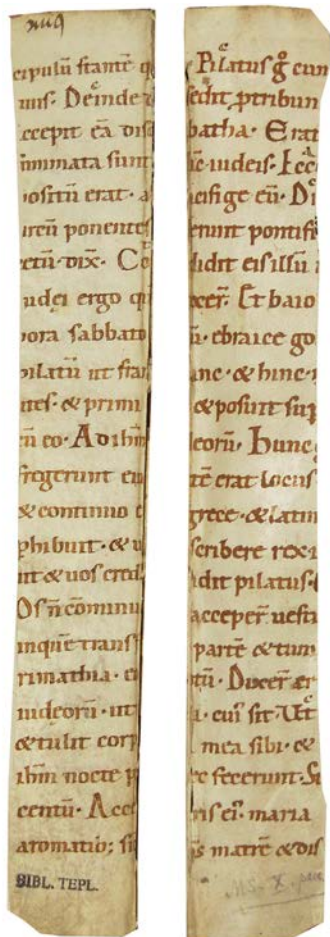 cipulū stantē q
uus. Deinde
accepit eā dis
ūmmata sunt
ositū erat. a
irēū ponentes
etū. dix. Co
udei ergo q
iora sabbato
pilatū ut fran
ites. & primi
ū eo. Ad ihm
fregerunt ei
& continuo e
phibuit. & u
ut & uos cred
Os n̄ cōminu
inquē trans
rimathia. e
iudeorū. ut
& tulit corp
ihm nocte p
centū. Acce
aromatib; si
BIBL. TEPL.
Pilatus g̊ cum
sedit ptribun
batha. Erat
iudeis. Ecc
cifige eū. Di
erunt pontifi
didit eis illū
Et baio
ū. ebraice go
inc. & hinc.
& posuit sup
deorū. Hunc
tē erat locus
grece. & latin
scribere rex
dit pilatus.
acceper̄ uesti
partē & tuni
tū. Dixer̄ er
a. cui' sit. Ut
mea sibi. &
ec fecerunt. S
ris ei'. maria
matrē & dis